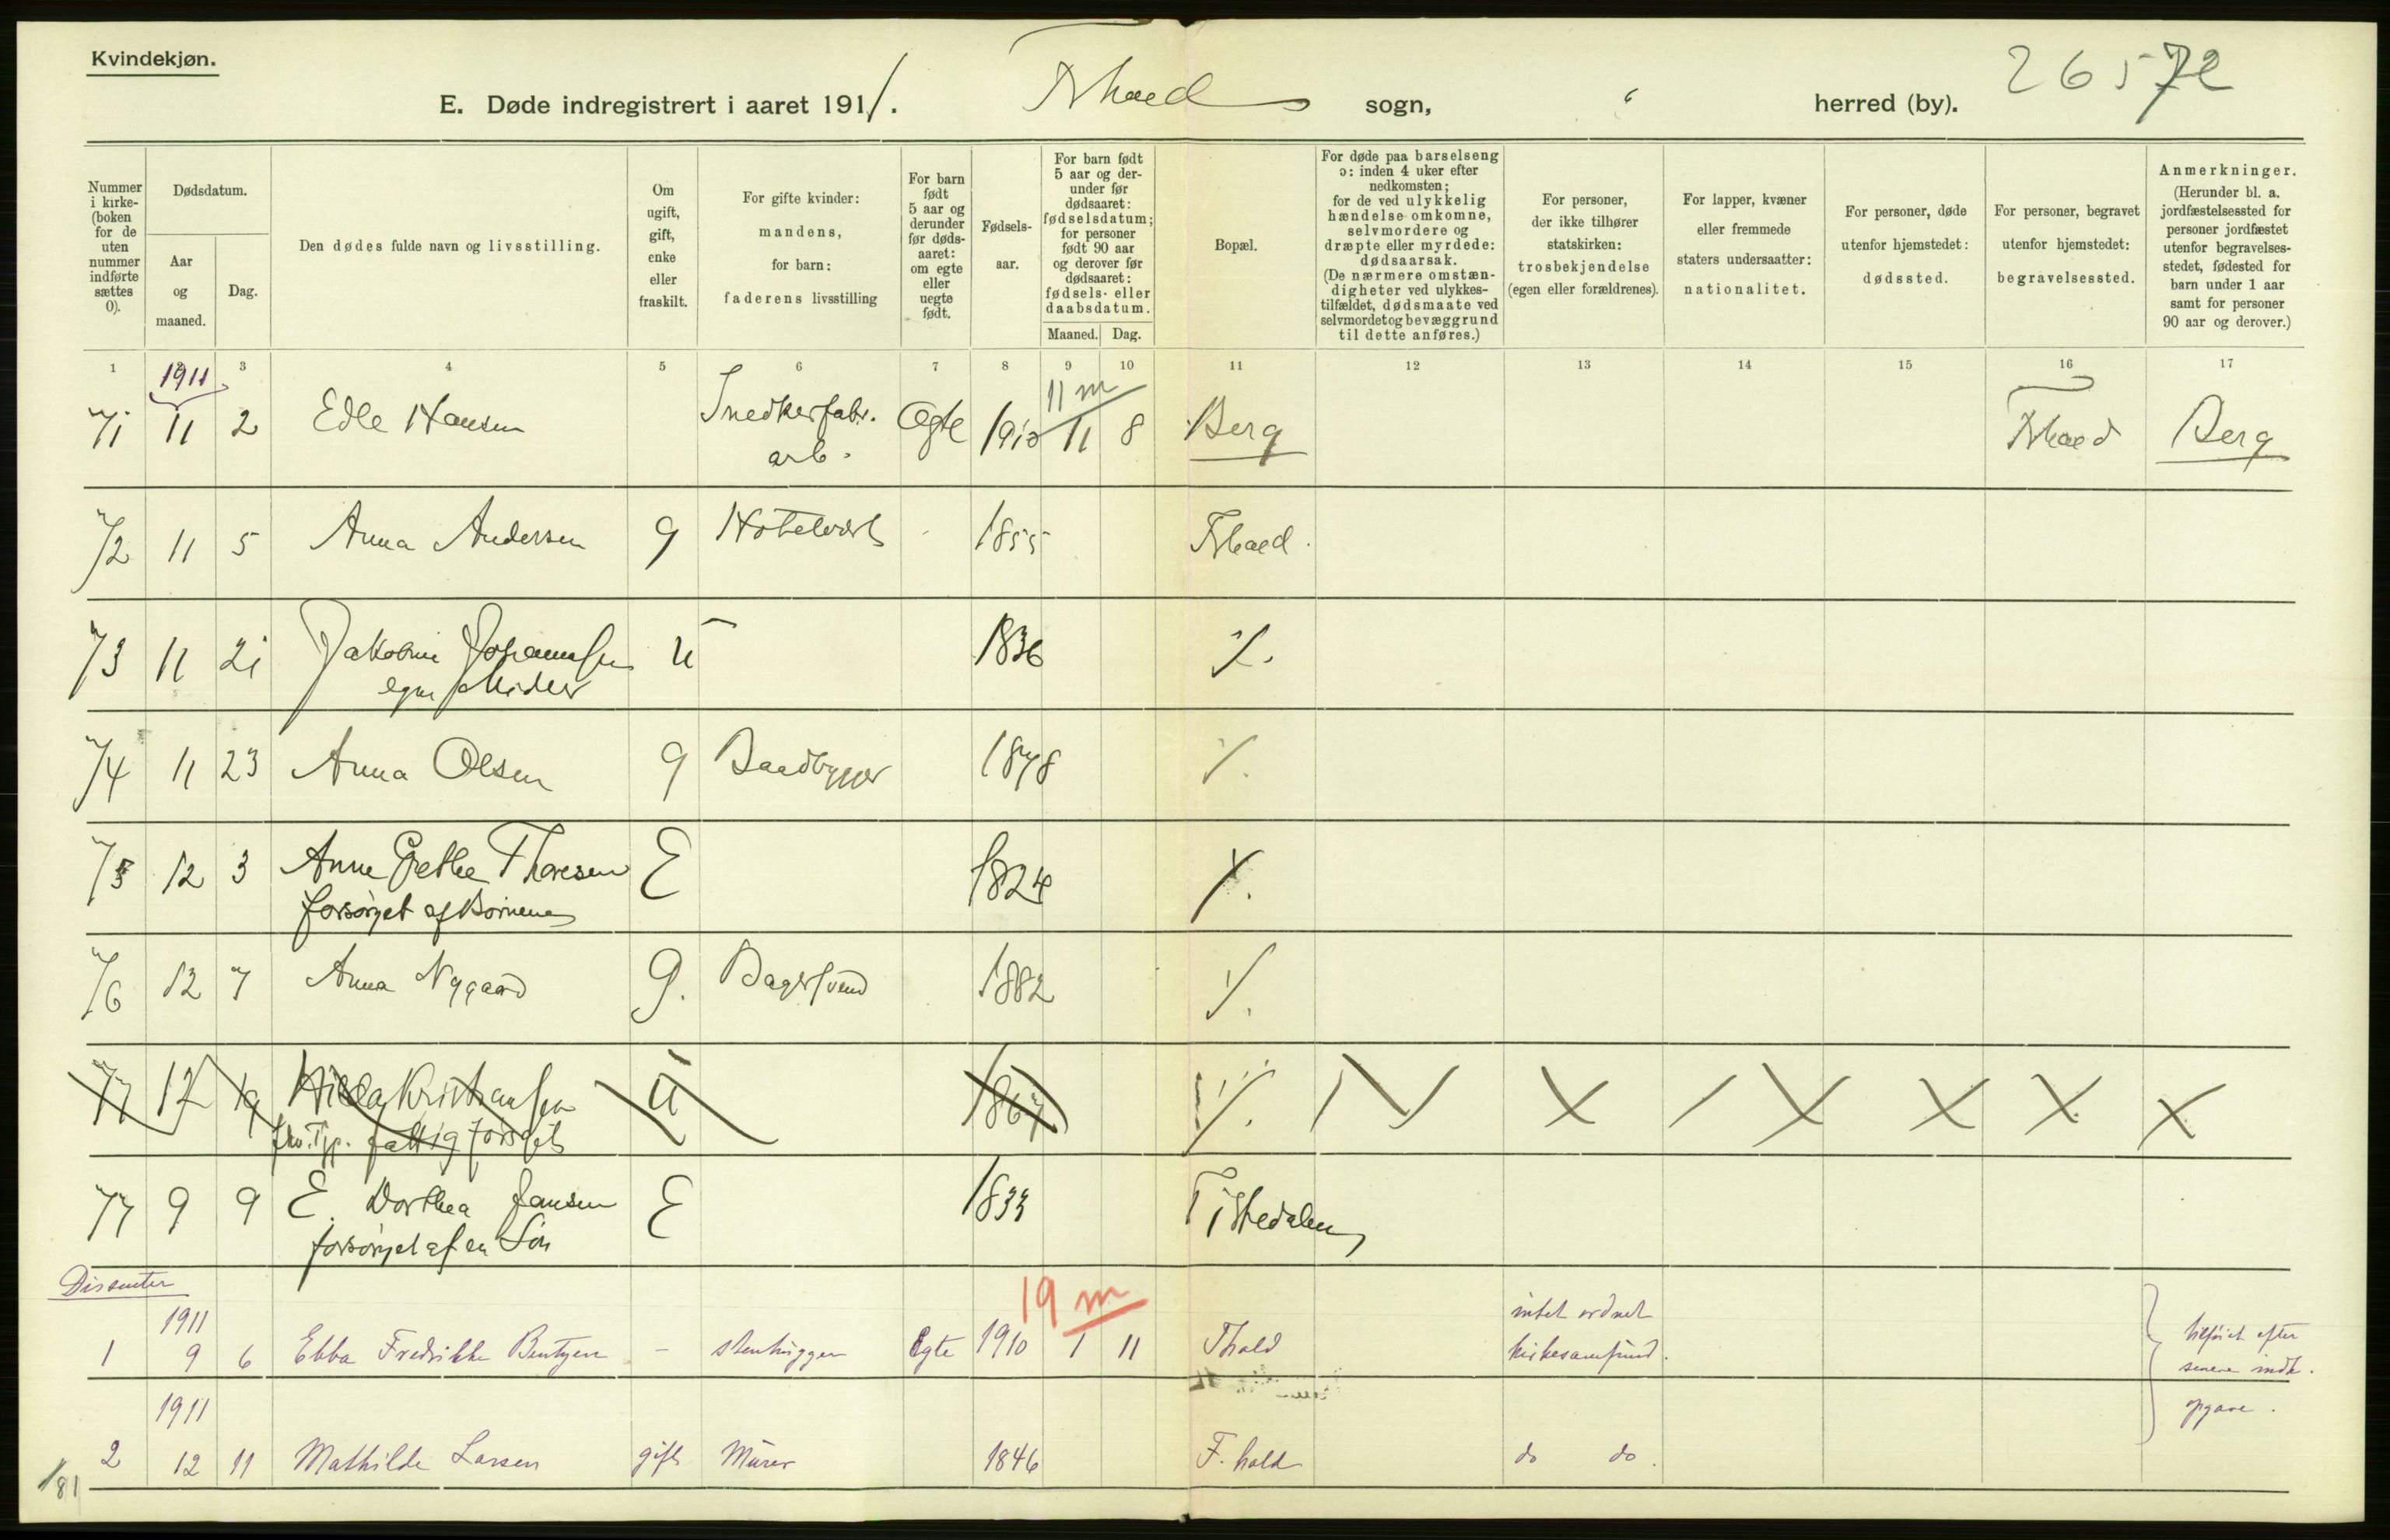 Kvindekjøn.
E. Døde indregistrert i aaret 1911.
Fhald sogn, " herred (by).
26572
Nummer i kirke- (boken for de uten nummer indførte sættes 0).
Dødsdatum.
Aar og maaned.
Dag.
Den dødes fulde navn og livsstilling.
Om ugift, gift, enke eller fraskilt.
For gifte kvinder: mandens, for barn: faderens livsstilling
For barn født 5 aar og derunder før døds- aaret: om egte eller uegte født.
Fødsels- aar.
For barn født 5 aar og der- under før dødsaaret: fødselsdatum; for personer født 90 aar og derover før dødsaaret: fødsels- eller daabsdatum.
Maaned. Dag.
Bopæl.
For døde paa barselseng ɔ: inden 4 uker efter nedkomsten; for de ved ulykkelig hændelse omkomne, selvmordere og dræpte eller myrdede: dødsaarsak. (De nærmere omstæn- digheter ved ulykkes- tilfældet, dødsmaate ved selvmordet og bevæggrund til dette anføres.)
For personer, der ikke tilhører statskirken: trosbekjendelse (egen eller forældrenes).
For lapper, kvæner eller fremmede staters undersaatter: nationalitet.
For personer, døde utenfor hjemstedet: dødssted.
For personer, begravet utenfor hjemstedet: begravelsessted.
Anmerkninger. (Herunder bl. a. jordfæstelsessted for personer jordfæstet utenfor begravelses- stedet, fødested for barn under 1 aar samt for personer 90 aar og derover.)
1 2 3 4 5 6 7 8 9 10 11 12 13 14 15 16 17
1911 11 m
71 11 2 Edle Hansen Snedkerfabr. Egte 1910 11 8 Berg Fhald Berg
arb.
72 11 5 Anna Andersen g Hotelvært 1855 Fhald.
73 11 21 Jakobine Johannesen u 1836 ٪.
egne Midler
74 11 23 Anna Olsen g Baadbygger 1878 ٪.
75 12 3 Anne Grethe Thoresen E 1824 ٪.
forsørget af Børnene
76 12 7 Anna Nygaard g. Bagersvend 1882 ٪.
77 12 19 Hilda Kristiansen u 1867 ٪.
fattig forsørget
77 9 9 E. Dorthea Jansen E 1833 Tistedalen
forsørget af en Søn
Dissenter
19 m
1911 intet ordnet
1 9 6 Ebba Fredrikke Bentzen - stenhugger Egte 1910 1 11 Fhald kirkesamfund. tilføiet efter
senere indk.
1911 opgave.
2 12 11 Mathilde Larsen gift Murer 1846 F.hald do do.
181